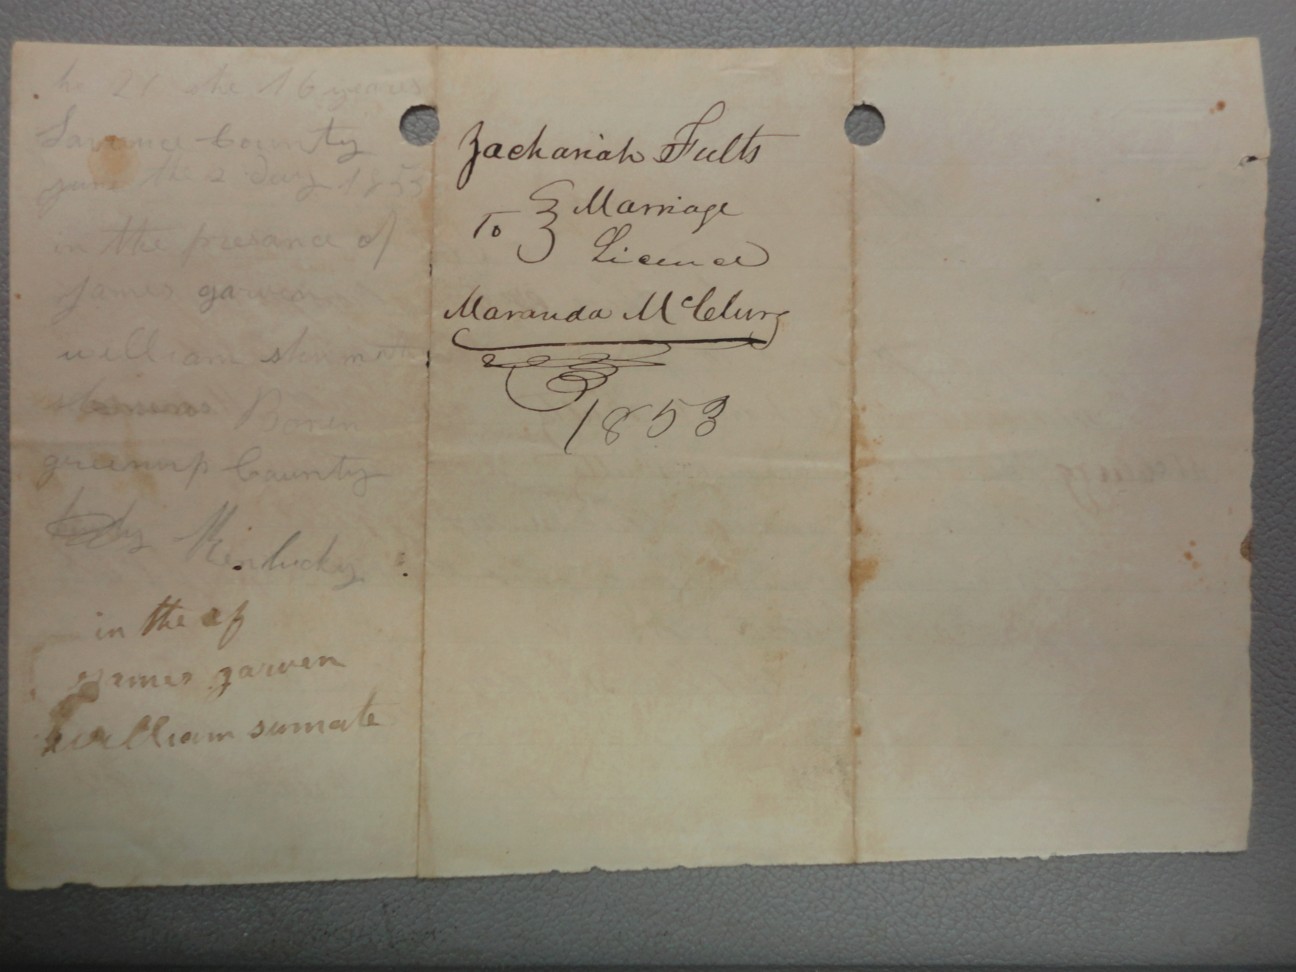 he 21 she 16 years
Larance County
June the 2 day 1853
in the presance of
James garven
william shumate
Boren
greenup County
Kentucky
in the of
James garven
william sumate
Zachariah Fults
To Marriage
Licence
Maranda McClurg
1853